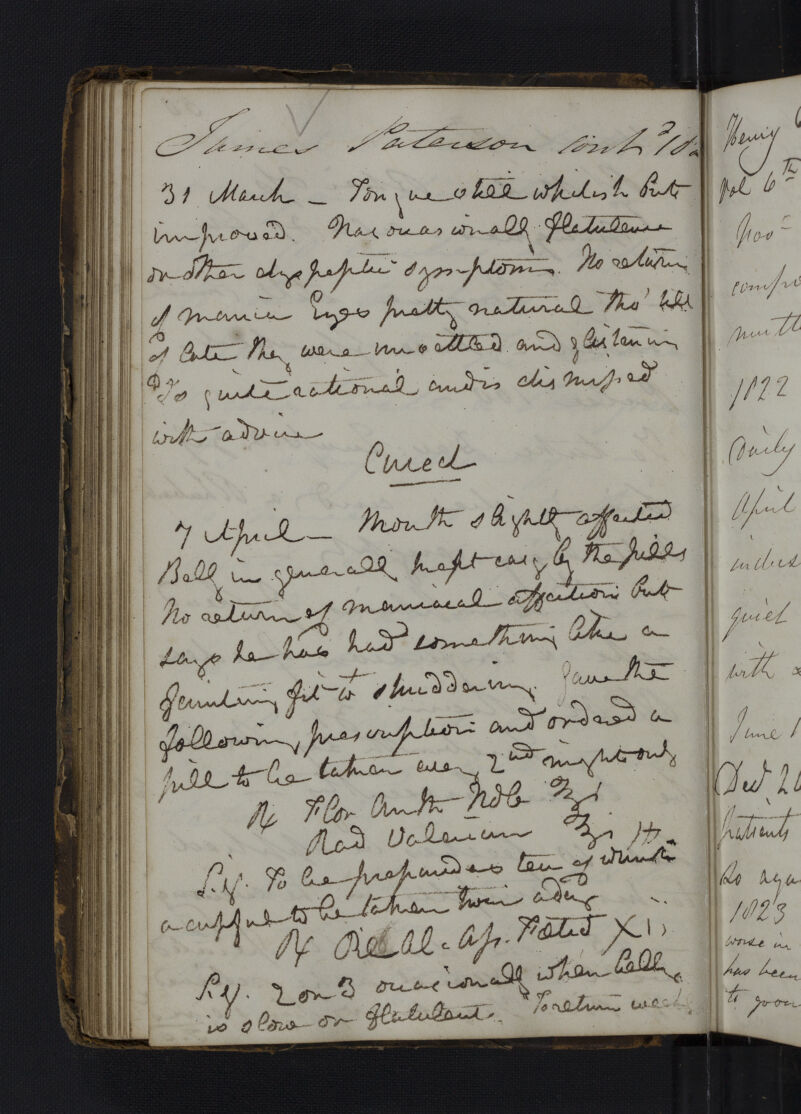 James Paterson contd
31 March – Tongue still whitish but
improved. Has occasionally flatulence
or other dyspeptic symptoms. No return
of mania Eyes pretty natural tho' till
of late they were unsettled and glistening
Is quite rational and is dismissed
with advice
Cured
7 April – Mouth slightly affected
Belly in generally kept easy by the pills
No return of maniacal affection but
says he has had something like a
fainting fit wt shuddering. Gave the
following prescription and ordered a
pill to be taken every 2nd night only
℞ Flor Anth Nob ℥i
Rad Valerian ℥i
Sig. To be prepared as tea of which
a cupful to be taken twice a day
℞ Pil Al. Ass. Fœtid Xii
Sig. 2 or 3 occasionally when belly
is slow or flatulent. To return
Henry
Vol 6th
Nov
1822
Daily
April
quiet
with
June 1
Decr 26
patients
so aga
1823
worse in
has been
to